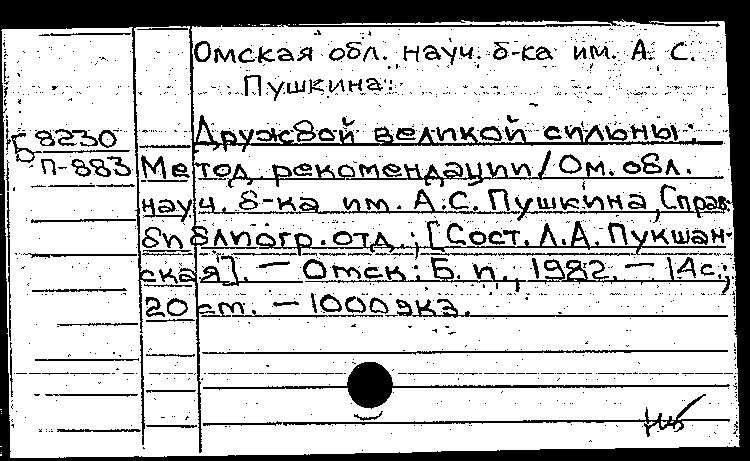 Омская обл. науч. б-ка им. А. С.
Пушкина.
Б 8230
П-883
Дружбой великой сильны:
Метод. рекомендации/Ом. обл.
науч. б-ка им. А.С. Пушкина, Справ.-
библиогр. отд.; [Сост. Л.А. Пукшан-
ская]. — Омск: Б. и., 1982. — 14 с.;
20 см. — 1000 экз.